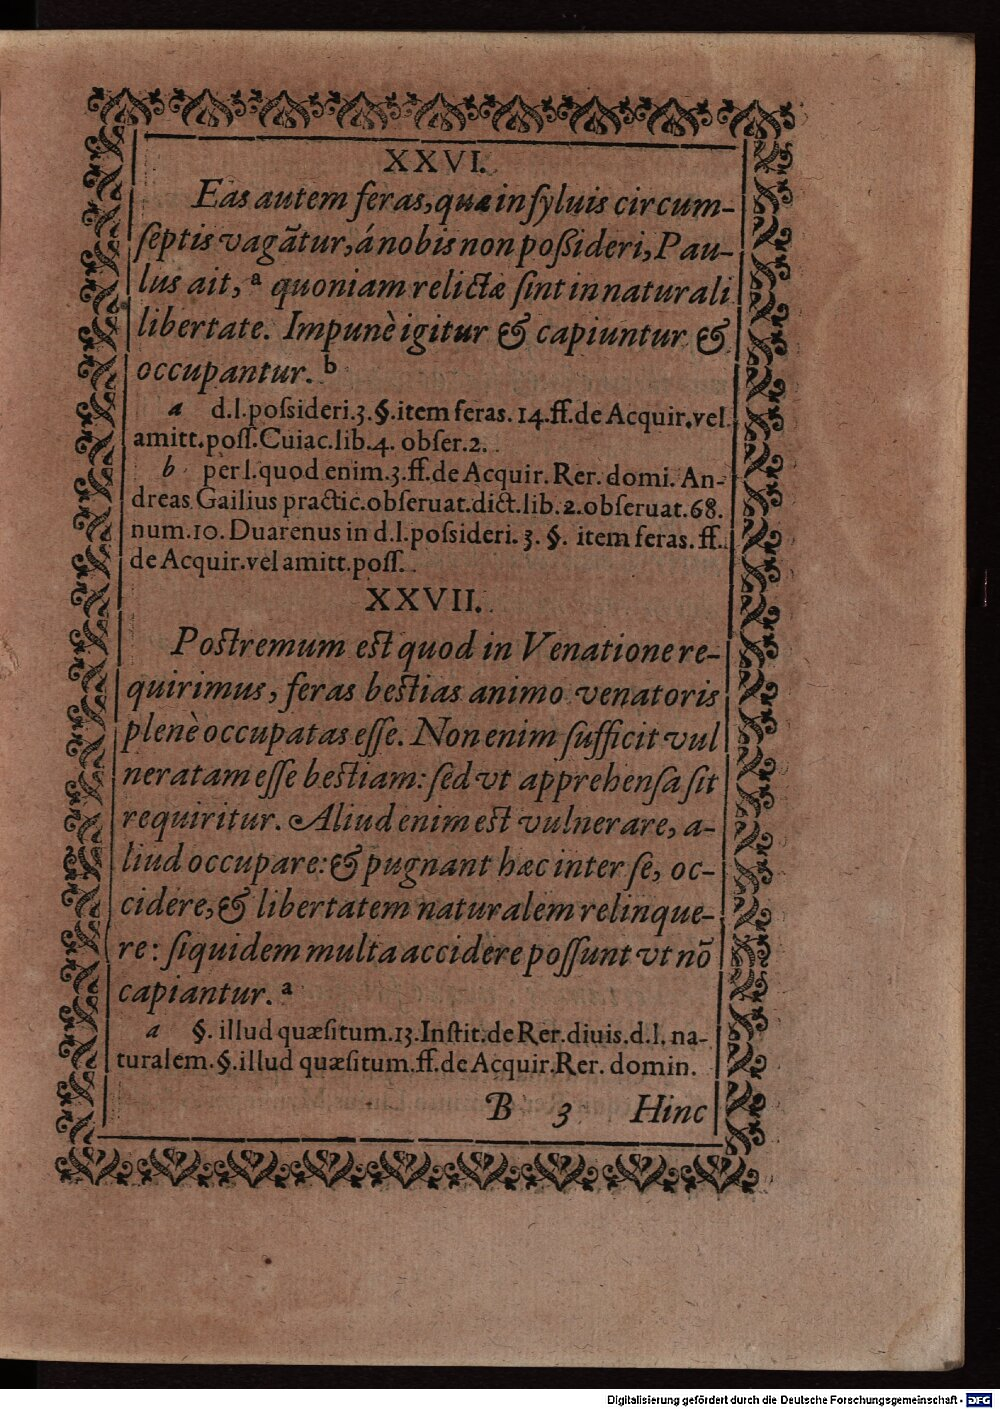 XXVI.
Eas autem feras, quæ in ſyluis circum-
ſeptis vagãtur, á nobis non poßideri, Pau-
lus ait, ª quoniam relictæ ſint in naturali
libertate. Impunè igitur & capiuntur &
occupantur. ᵇ
a d.l.poſsideri.3.§.item feras.14.ff.de Acquir.vel
amitt.poſſ.Cuiac.lib.4. obſer.2.
b per l.quod enim.3.ff.de Acquir. Rer. domi. An-
dreas Gailius practic.obſeruat.dict.lib.2.obſeruat.68.
num.10. Duarenus in d.l.poſsideri. 3. §. item feras. ff.
de Acquir.vel amitt.poſſ.
XXVII.
Poſtremum eſt quod in Venatione re-
quirimus, feras beſtias animo venatoris
plenè occupatas eſſe. Non enim ſufficit vul
neratam eſſe beſtiam: ſed vt apprehenſa ſit
requiritur. Aliud enim eſt vulnerare, a-
liud occupare: & pugnant hæc inter ſe, oc-
cidere, & libertatem naturalem relinque-
re: ſiquidem multa accidere poſſunt vt nõ
capiantur. ª
a §. illud quæſitum.13.Inſtit.de Rer.diuis.d.l. na-
turalem.§.illud quæſitum.ff.de Acquir.Rer. domin.
B 3 Hinc
Digitalisierung gefördert durch die Deutsche Forschungsgemeinschaft - DFG